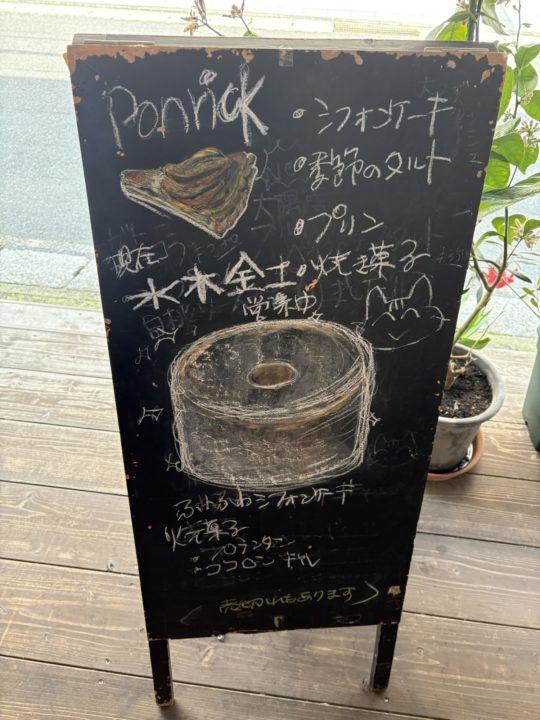 Ponrick
・シフォンケーキ
・季節のタルト
・プリン
・焼き菓子
現在
水木金土
営業中
ふわふわシフォンケーキ
焼き菓子
・フロランタン
売切れもあります